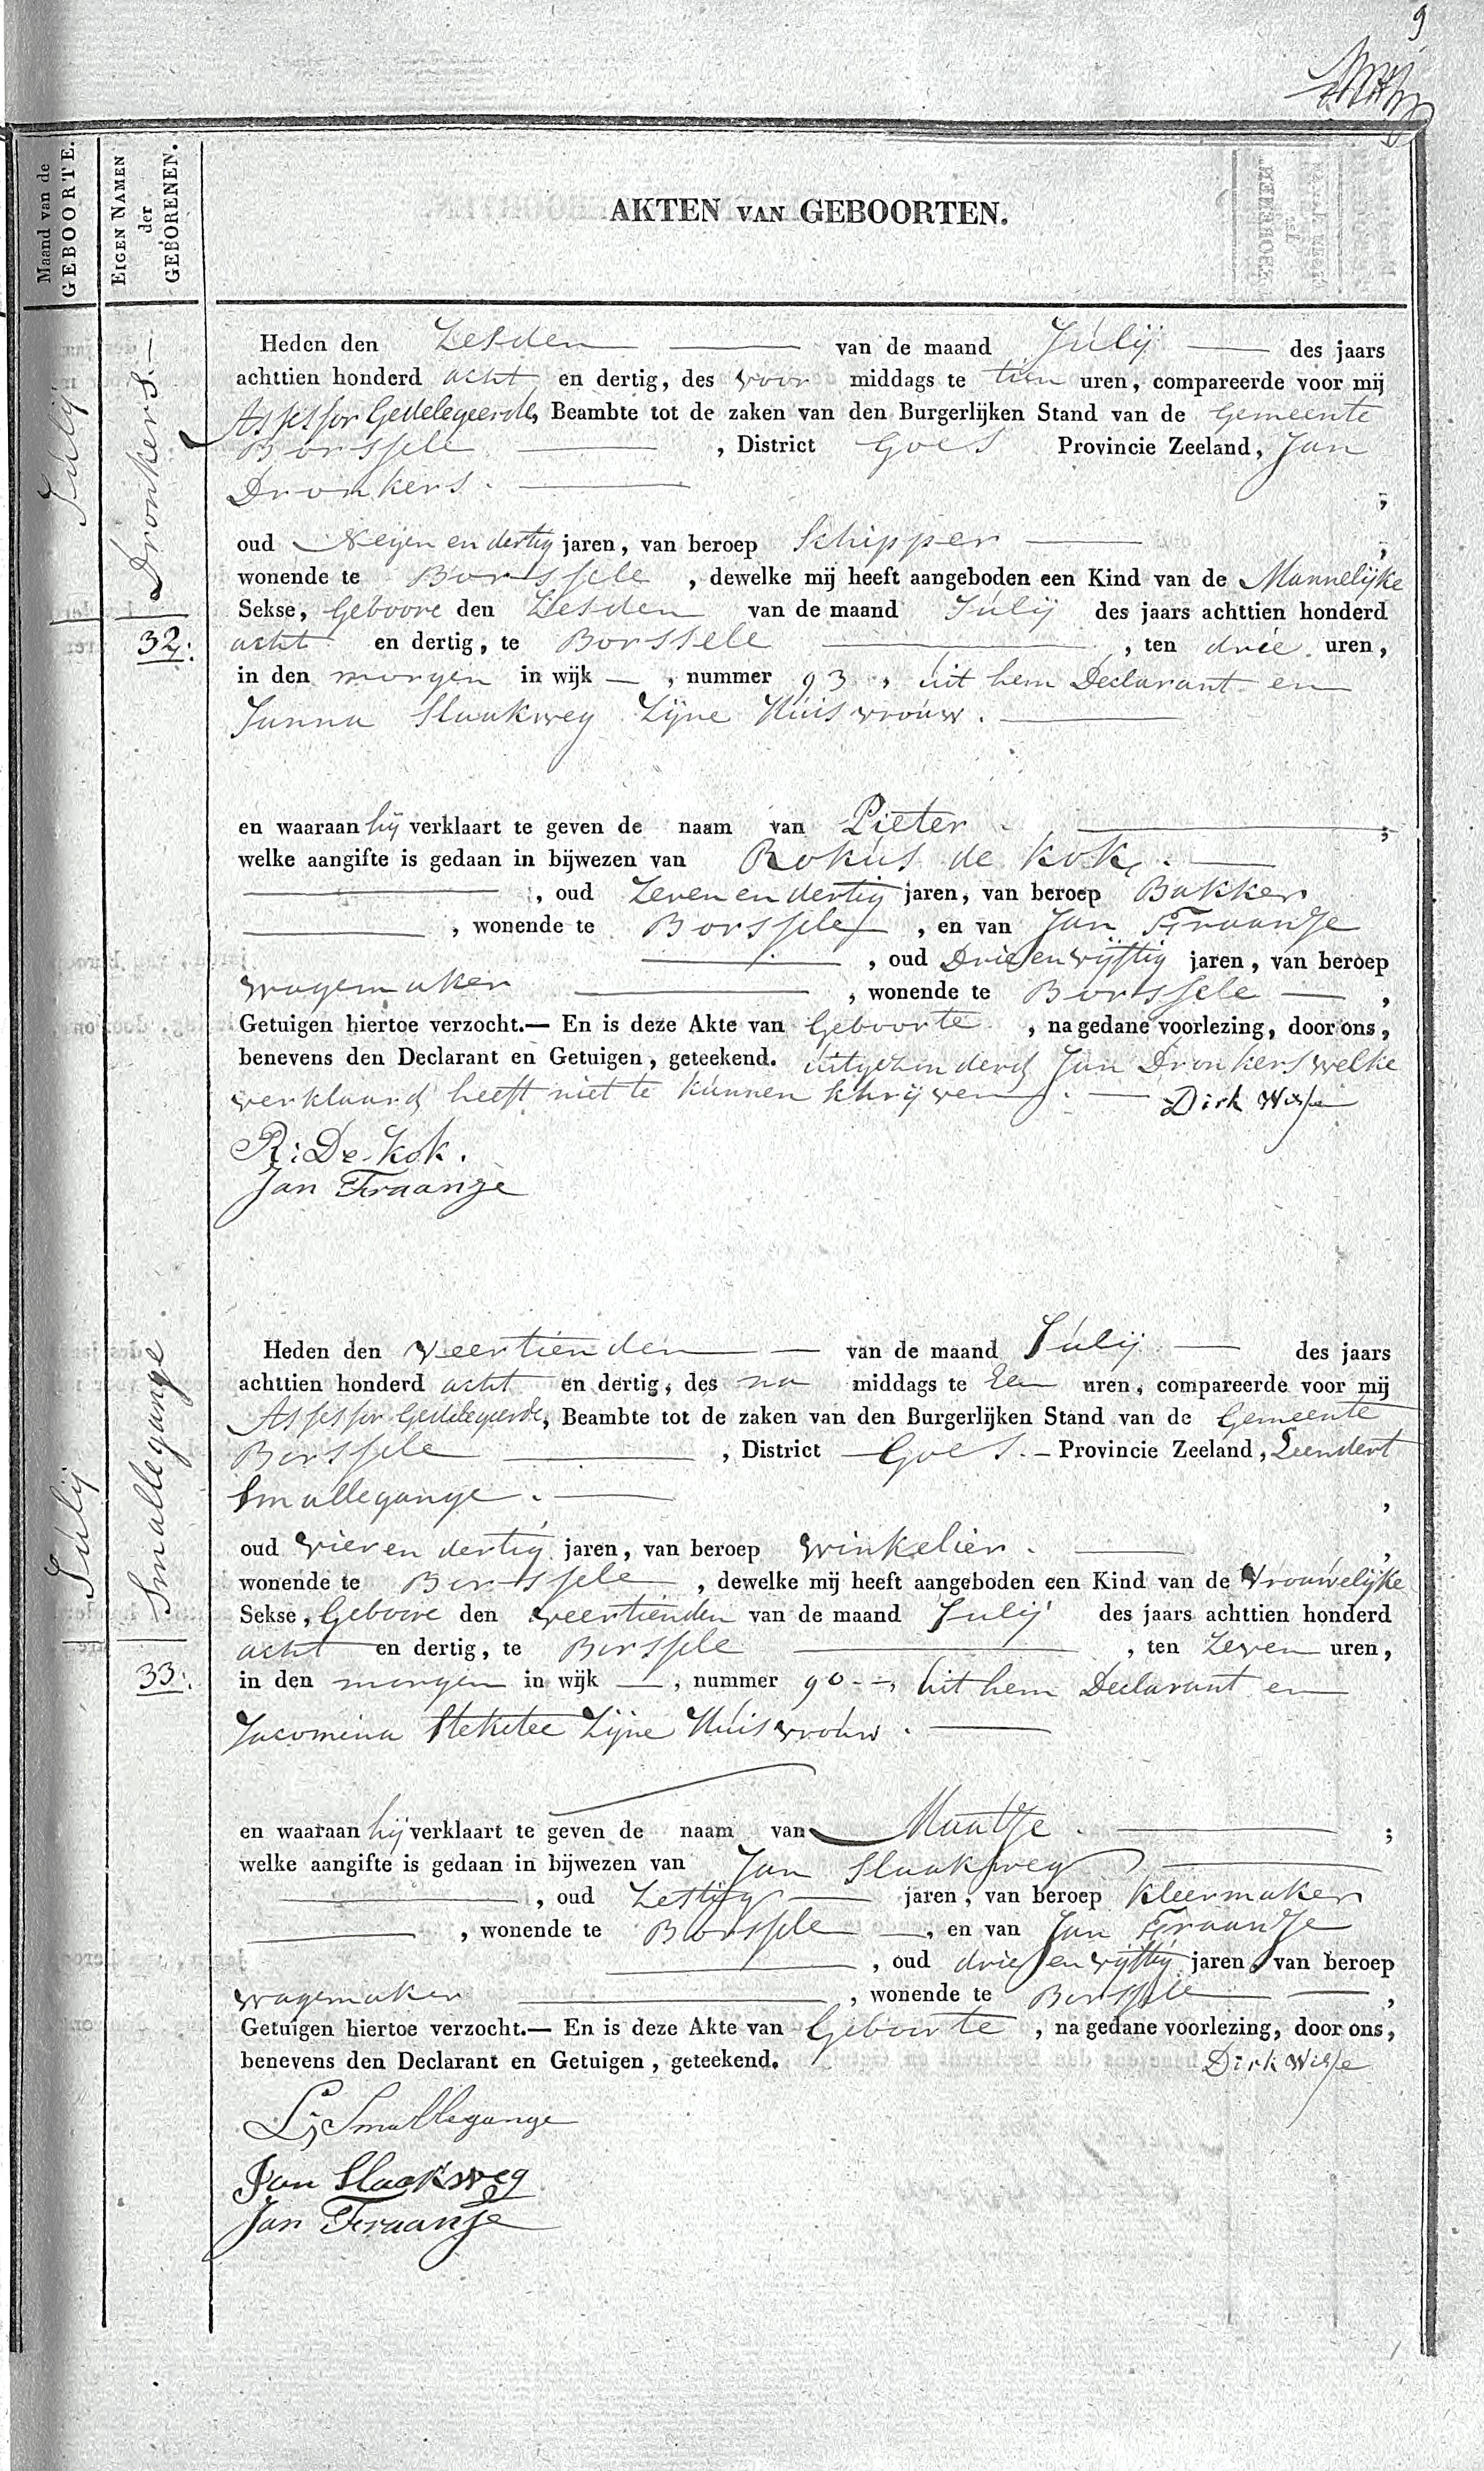 9
Maand van de
GEBOORTE.
EIGEN NAMEN
der
GEBORENEN.
AKTEN VAN GEBOORTEN.
Julij
Dronkers.
32.
Heden den Zesden van de maand Julij des jaars
achttien honderd acht en dertig, des voor middags te tien uren, compareerde voor mij
Assessor Gedelegeerde, Beambte tot de zaken van den Burgerlijken Stand van de Gemeente
Borssele , District Goes Provincie Zeeland, Jan
Dronkers. ;
oud Negen en dertig jaren, van beroep Schipper ;
wonende te Borssele , dewelke mij heeft aangeboden een Kind van de Mannelijke
Sekse, Geboore den Zesden van de maand Julij des jaars achttien honderd
acht en dertig, te Borssele , ten drie uren,
in den morgen in wijk — , nummer 93 , uit hem Declarant en
Janna Slaakweg Zijne Huisvrouw.
en waaraan hij verklaart te geven de naam van Pieter. ;
welke aangifte is gedaan in bijwezen van Rokus de Kok.
, oud Zeven en dertig jaren, van beroep Bakker
, wonende te Borssele , en van Jan Fraanje
, oud Drie en vijftig jaren, van beroep
wagemaker , wonende te Borssele — ,
Getuigen hiertoe verzocht.— En is deze Akte van Geboorte , na gedane voorlezing, door ons,
benevens den Declarant en Getuigen, geteekend. uitgezonderd Jan Dronkers welke
verklaard heeft niet te kunnen schrijven. — Dirk Wisse
R: De Kok.
Jan Fraanje
Julij
Smallegange.
33.
Heden den veertienden — van de maand Julij — des jaars
achttien honderd acht en dertig, des na middags te Een uren, compareerde voor mij
Assessor Gedelegeerde, Beambte tot de zaken van den Burgerlijken Stand van de Gemeente
Borssele , District Goes. — Provincie Zeeland, Leendert
Smallegange. ,
oud vier en dertig jaren, van beroep winkelier. ,
wonende te Borssele , dewelke mij heeft aangeboden een Kind van de Vrouwelijke
Sekse, Geboore den veertienden van de maand Julij des jaars achttien honderd
acht en dertig, te Borssele , ten Zeven uren,
in den morgen in wijk — , nummer 90 — , uit hem Declarant en
Jacomina Steketee Zijne Huisvrouw.
en waaraan hij verklaart te geven de naam van Maatje. ;
welke aangifte is gedaan in bijwezen van Jan Slaakweg
, oud Zestig jaren, van beroep Kleermaker
, wonende te Borssele — , en van Jan Fraanje
, oud drie en vijftig jaren, van beroep
wagemaker , wonende te Borssele — ,
Getuigen hiertoe verzocht.— En is deze Akte van Geboorte , na gedane voorlezing, door ons,
benevens den Declarant en Getuigen, geteekend. Dirk Wisse
L. Smallegange
Jan Slaakweg
Jan Fraanje